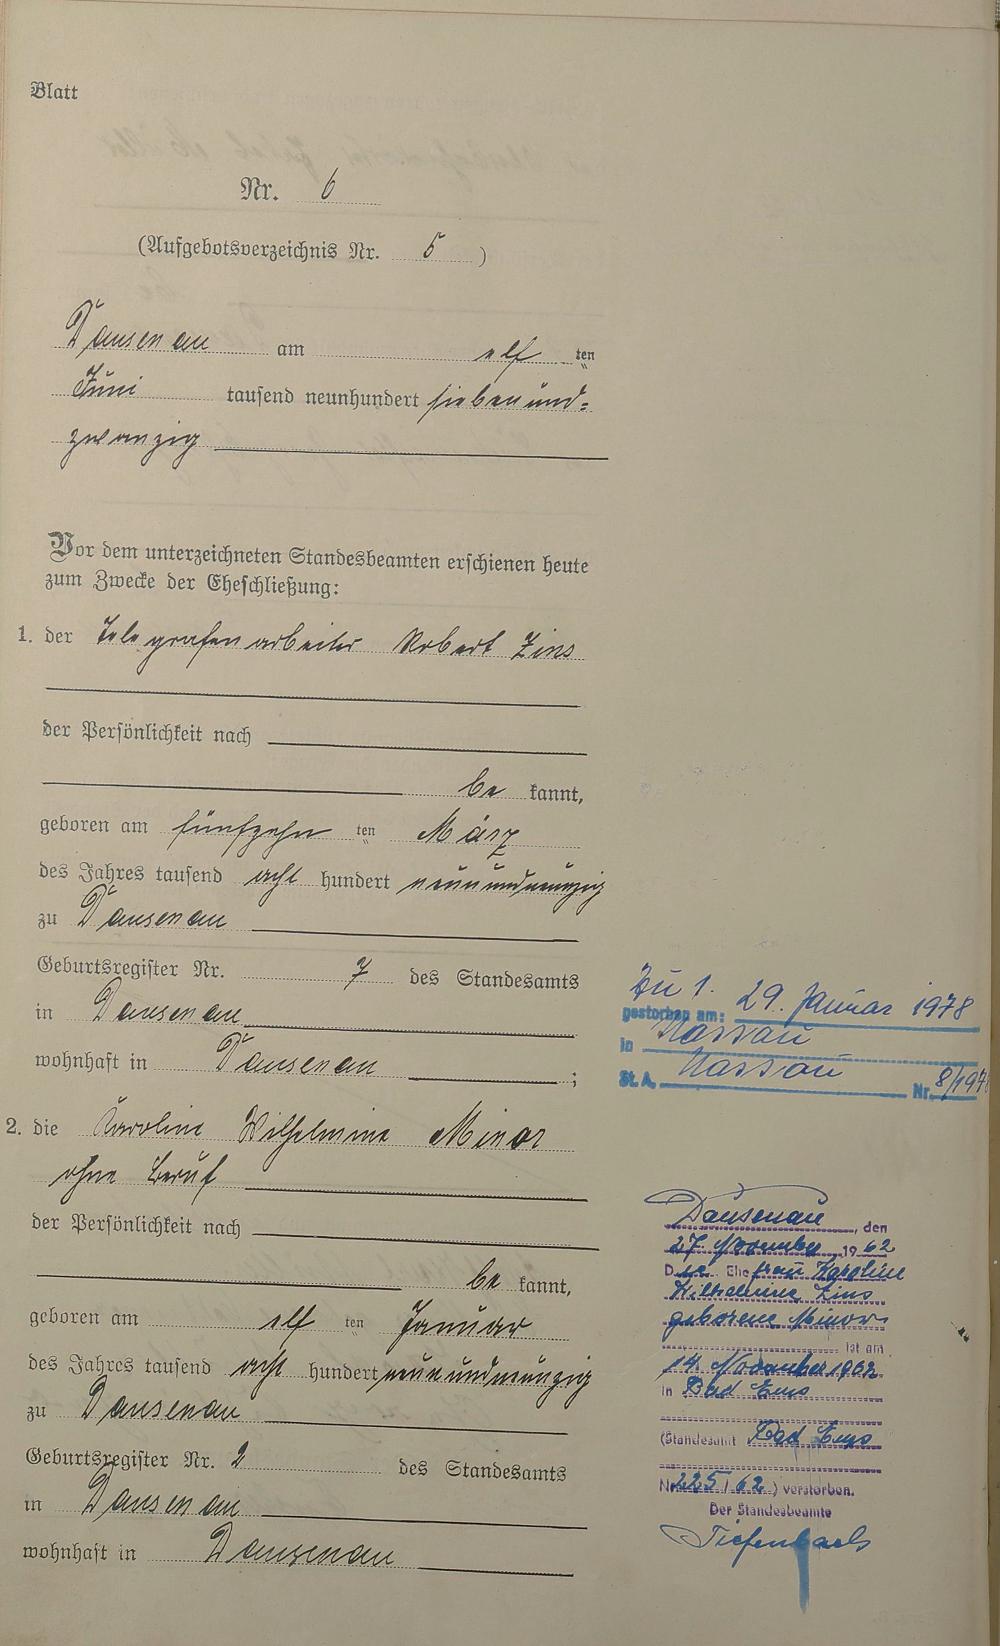 Blatt
Nr. 6
(Aufgebotsverzeichnis Nr. 5)
Dausenau am elf ten
Juni tausend neunhundert siebenund=
zwanzig
Vor dem unterzeichneten Standesbeamten erschienen heute
zum Zwecke der Eheschließung:
1. der Telegrafenarbeiter Robert Zins
der Persönlichkeit nach
be kannt,
geboren am fünfzehn ten März
des Jahres tausend acht hundert neunundneunzig
zu Dausenau
Geburtsregister Nr. 7 des Standesamts
in Dausenau
wohnhaft in Dausenau ;
2. die Karoline Wilhelmine Minor
ohne Beruf
der Persönlichkeit nach
be kannt,
geboren am elf ten Januar
des Jahres tausend acht hundert neunundneunzig
zu Dausenau
Geburtsregister Nr. 2 des Standesamts
in Dausenau
wohnhaft in Dausenau
Zu 1.
gestorben am: 29. Januar 1978
in Nassau
St.A. Nassau Nr. 8/1978
Dausenau, den
27. November 1962
Die Ehefrau Karoline
Wilhelmine Zins
geborene Minor
ist am
14. November 1962
in Bad Ems
(Standesamt Bad Ems
Nr. 225/62) verstorben.
Der Standesbeamte
Tiefenbach